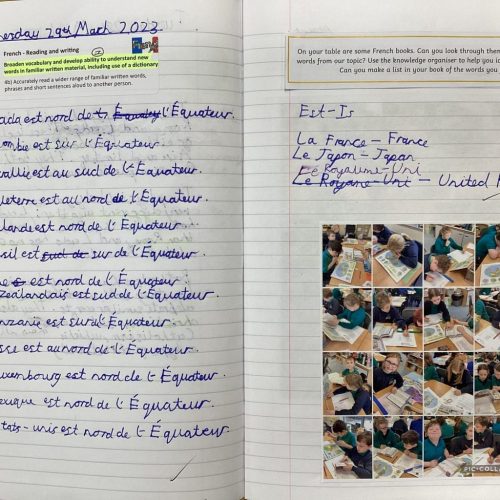 nesday 29th March 2023
French - Reading and writing
Broaden vocabulary and develop ability to understand new
words in familiar written material, including use of a dictionary
4b) Accurately read a wider range of familiar written words,
phrases and short sentences aloud to another person.
ada est nord de l'Équateur.
ombie est sur l'Équateur.
rallie est au sud de l'Équateur.
leterre est au nord de l'Équateur.
lande est nord de l'Équateur.
sil est sur de l'Équateur.
est nord de l'Équateur.
zealandais est sud de l'Équateur.
nzanie est sur de l'Équateur.
sse est au nord de l'Équateur.
uxembourg est nord de l'Équateur.
exique est nord de l'Équateur.
tats-unis est nord de l'Équateur.
On your table are some French books. Can you look through them
words from our topic? Use the knowledge organiser to help you id
Can you make a list in your book of the words you
Est-Is
La France - France
Le Japon - Japan
Le Royaume-Uni
Le Royane-Uni - United
PIC-COLLA